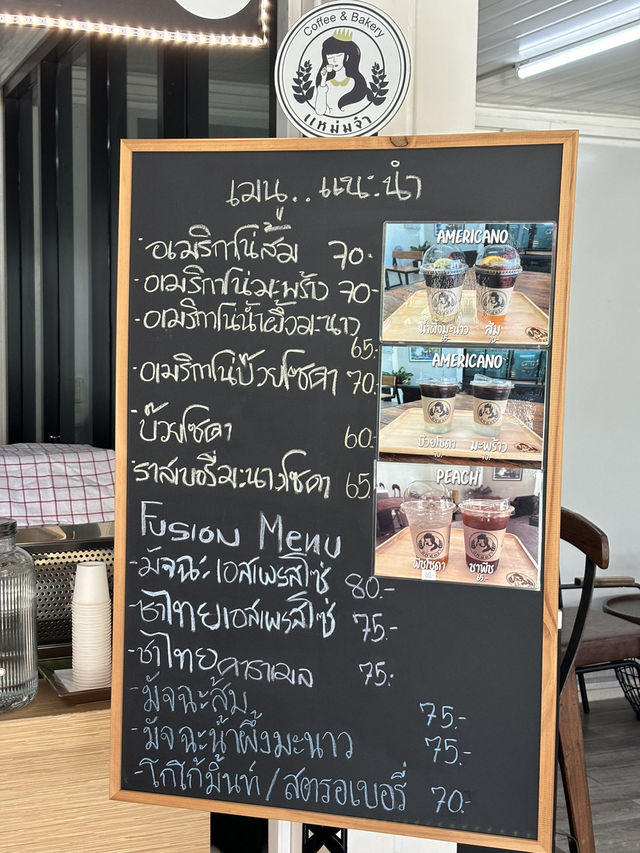 Coffee & Bakery
แหม่มจ๋า
เมนู..แนะนำ
-อเมริกาโน่ส้ม 70.-
-อเมริกาโน่มะพร้าว 70-
-อเมริกาโน่น้ำผึ้งมะนาว 65.-
-อเมริกาโน่บ๊วยโซดา 70.
-บ๊วยโซดา 60.-
-ราสเบอรี่มะนาวโซดา 65.
AMERICANO
น้ำผึ้งมะนาว ส้ม
AMERICANO
บ๊วยโซดา มะพร้าว
PEACH
พีชโซดา ชาพีช
Fusion Menu
-มัจฉะเอสเพรสโซ่ 80.-
-ชาไทยเอสเพรสโซ่ 75.-
-ชาไทยคาราเมล 75.-
-มัจฉะส้ม 75.-
-มัจฉะน้ำผึ้งมะนาว 75.-
-โกโก้มิ้นท์/สตรอเบอรี่ 70.-